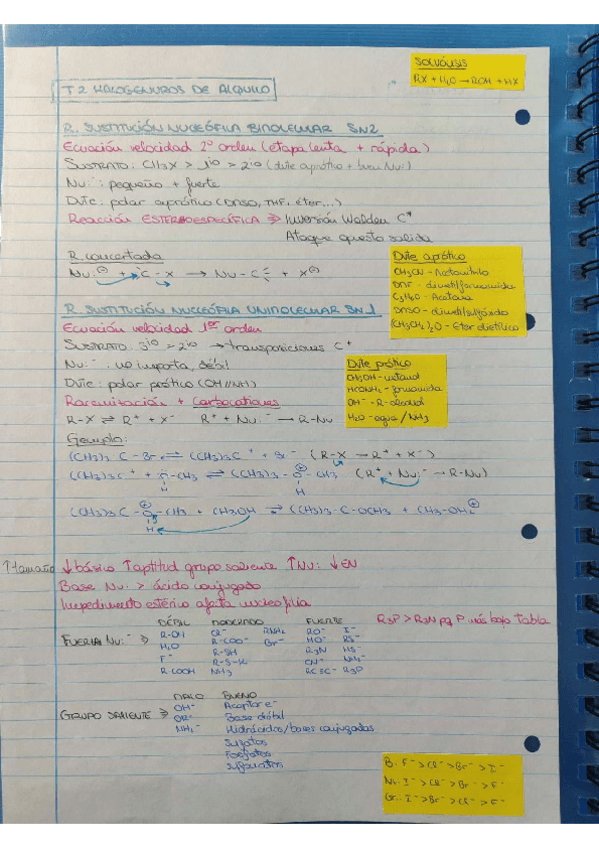 SOLVÓLISIS
RX + H2O → ROH + HX
T2 HALOGENUROS DE ALQUILO
R. SUSTITUCIÓN NUCLEÓFILA BIMOLECULAR SN2
Ecuación velocidad 2º orden (etapa lenta + rápida)
SUSTRATO: CH3X > 1io > 2io (dvte aprótico + buen Nu:)
Nu:⁻: pequeño + fuerte
Dvte: polar aprótico (DMSO, THF, éter...)
Reacción ESTEREOESPECÍFICA ⇒ Inversión Walden C*
Ataque opuesto salida
R. concertada
Nu:⊖ + C - X → Nu - C + X⊖
Dvte aprótico
CH3CN - Acetonitrilo
DMF - dimetilformamida
C3H6O - Acetona
DMSO - dimetilsulfóxido
(CH3CH2)2O - Éter dietílico
R. SUSTITUCIÓN NUCLEÓFILA UNIMOLECULAR SN1
Ecuación velocidad 1er orden
SUSTRATO: 3io > 2io → transposiciones C⁺
Nu:⁻: no importa, débil
Dvte: polar prótico (OH//NH)
Racemización + Carbocationes
R-X ⇌ R⁺ + X⁻ R⁺ + Nu:⁻ → R-Nu
Dvte prótico
CH3OH - metanol
HCONH2 - formamida
OH⁻ - R - alcohol
H2O - agua / NH3
Ejemplo:
(CH3)3 C - Br ⇌ (CH3)3 C⁺ + Br⁻ (R-X → R⁺ + X⁻)
(CH3)3 C⁺ + O - CH3 ⇌ (CH3)3 - O⊕ - CH3 (R⁺ + Nu:⁻ → R-Nu)
H H
(CH3)3 C - O⊕ - CH3 + CH3OH ⇌ (CH3)3 - C - OCH3 + CH3-OH2⊕
H
↑tamaño ↓básico ↑aptitud grupo saliente ↑Nu: ↓EN
Base Nu:⁻ > ácido conjugado
Impedimento estérico afecta nucleofilia
R3P > R3N pq P más bajo tabla
DÉBIL MODERADO FUERTE
R-OH Cl⁻ RNH2 RO⁻ I⁻
FUERZA Nu:⁻ ⇒ H2O R-COO⁻ Br⁻ HO⁻ RS⁻
F⁻ R-SH R3N HS⁻
R-S-R CN⁻ NH2⁻
R-COOH NH3 RC≡C⁻ R3P
MALO BUENO
OH⁻ Aceptar e⁻
GRUPO SALIENTE ⇒ OR⁻ Base débil
NH2⁻ Hidrácidos/bases conjugadas
Sulfatos
Fosfatos
Sulfonatos
B: F⁻ > Cl⁻ > Br⁻ > I⁻
Nu: I⁻ > Cl⁻ > Br⁻ > F⁻
Gr.: I⁻ > Br⁻ > Cl⁻ > F⁻